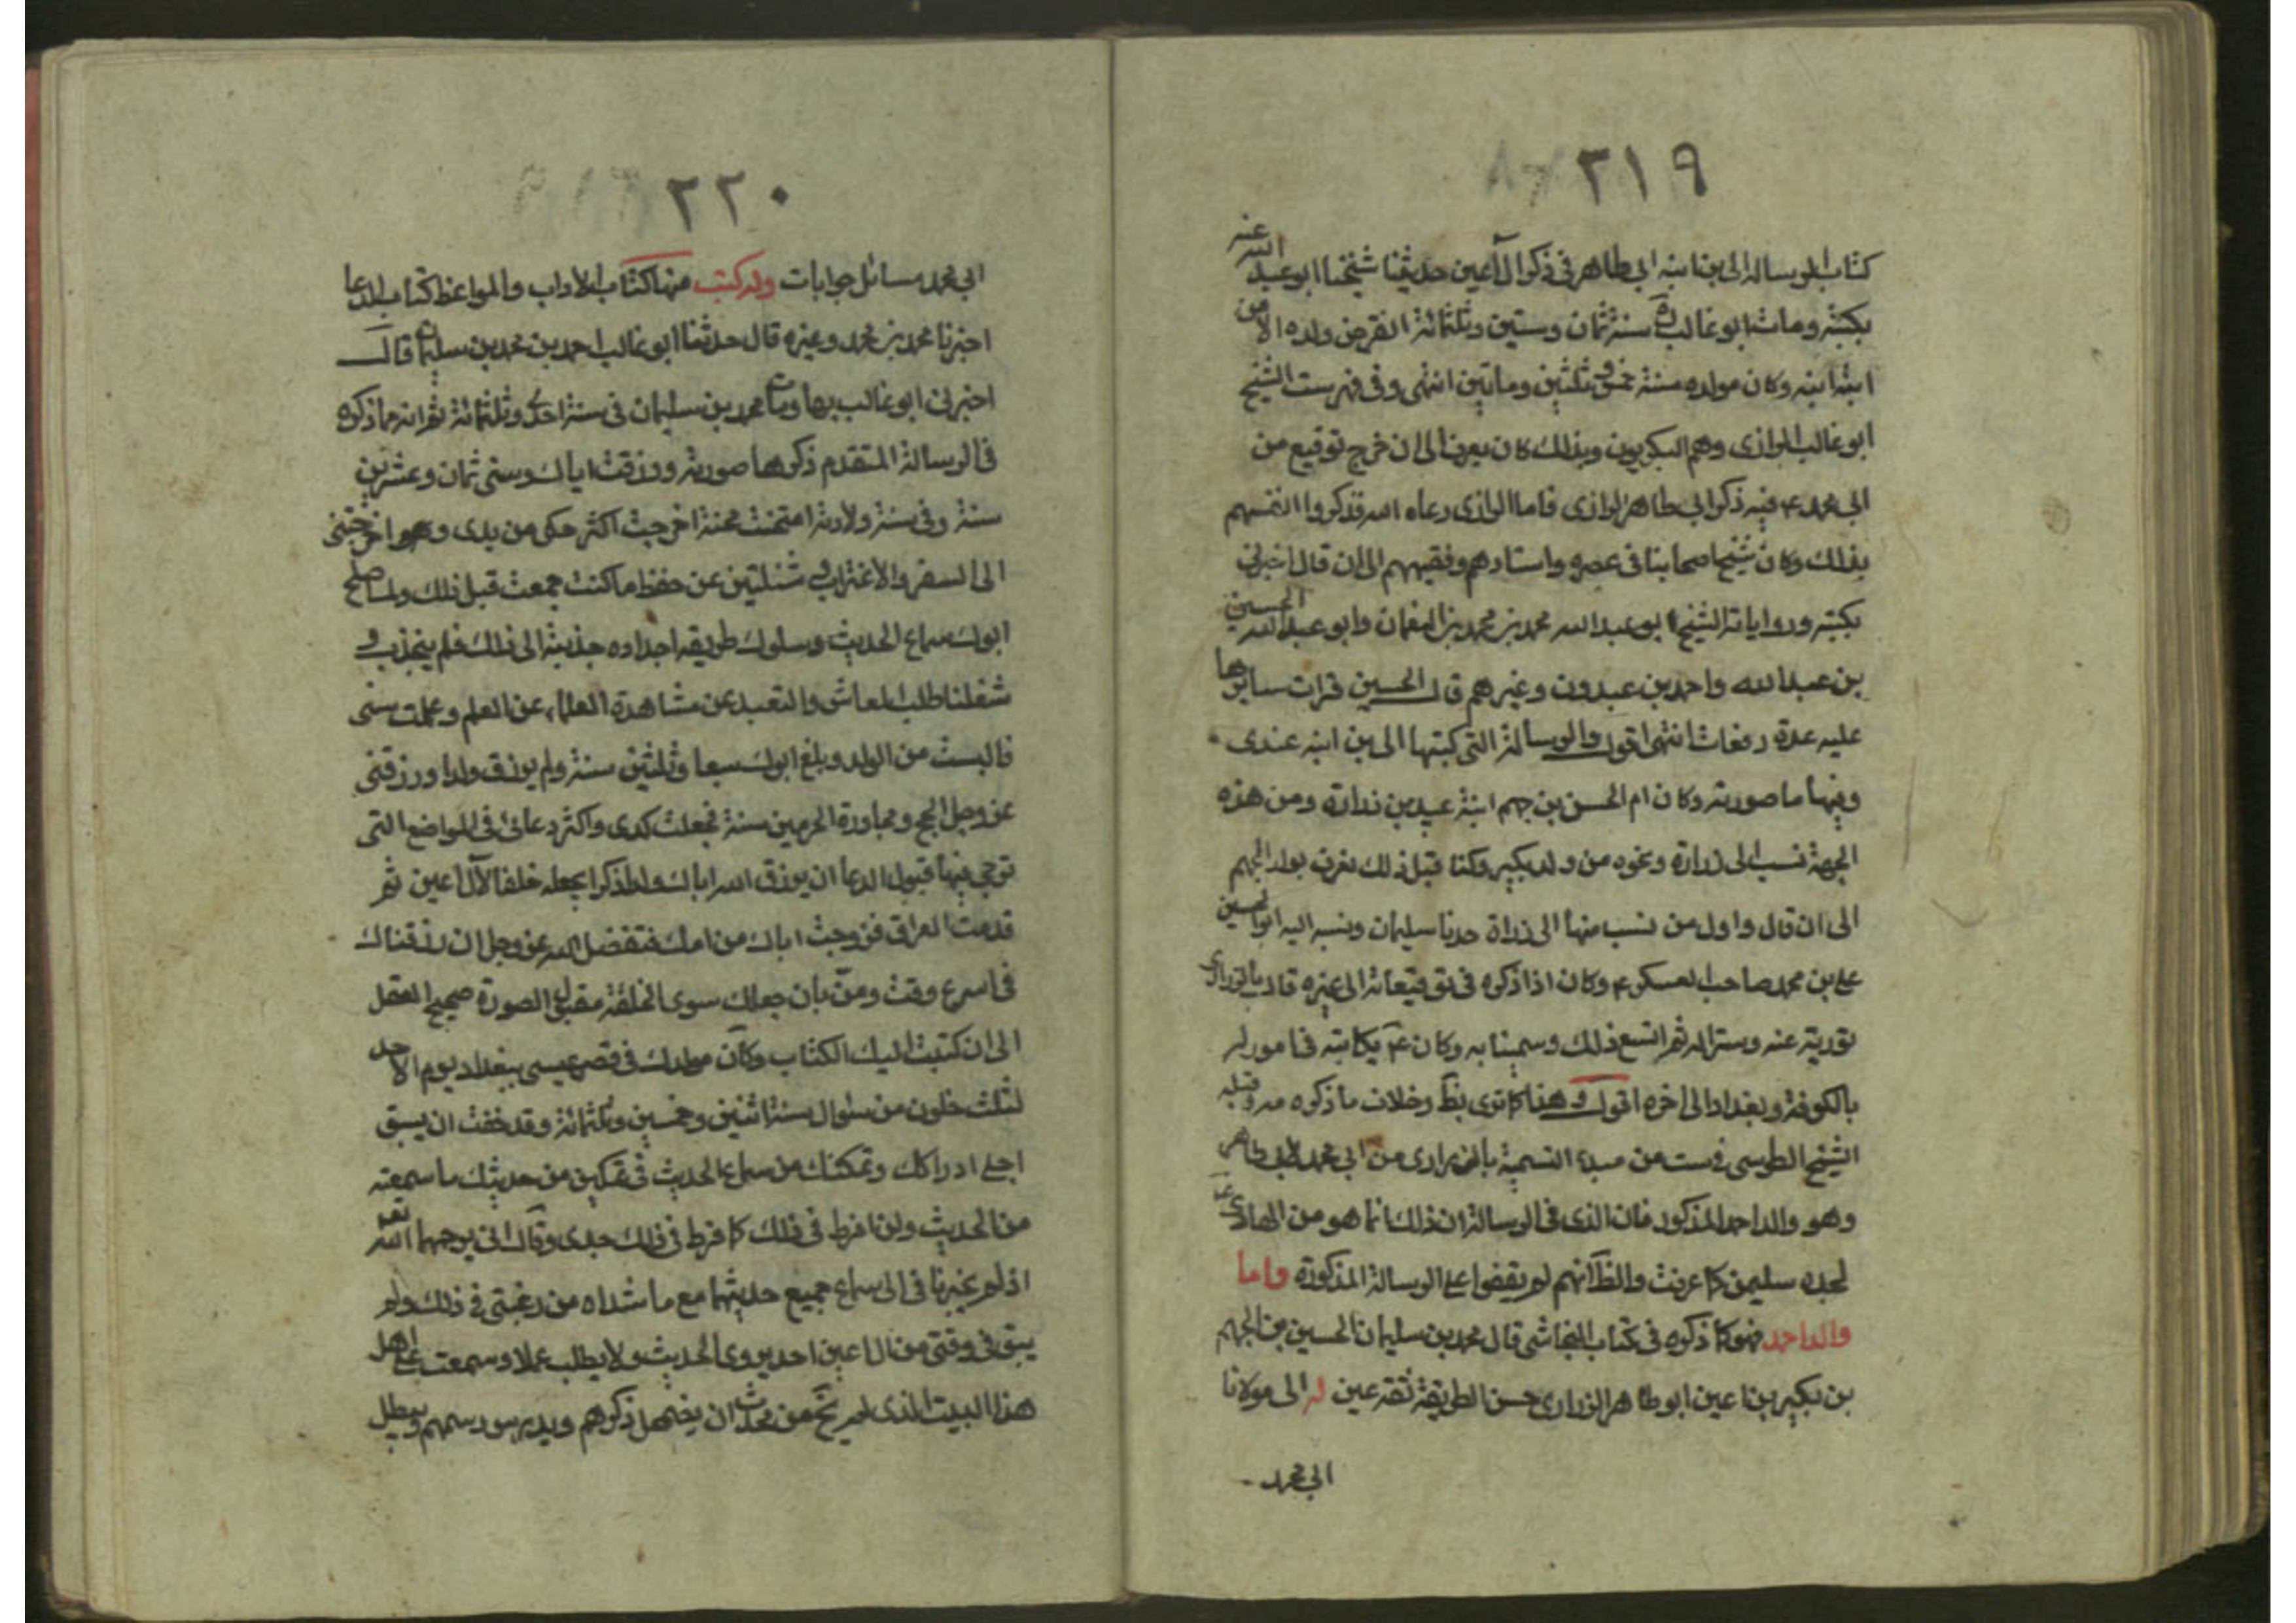 ٢١٩
كتاب الرسالة الى بن ابنه ابى طاهر فى ذكر آل اعين حدثنا شيخنا ابو عبد الله عنه
بكتبه ومات ابو غالب ره سنة ثمان وستين وثلثمائة انقرض ولده الا من
ابنة ابنه وكان مولده سنة خمس وثلثين ومأتين انتهى وفى فهرست الشيخ
ابو غالب الرازى وهم البكريون وبذلك كان يعرف الى ان خرج توقيع من
ابى محمد ع فيه ذكر ابى طاهر الرازى فاما الرازى رعاه الله فذكروا انفسهم
بذلك وكان شيخ اصحابنا فى عصره واستادهم وفقيههم الى ان قال اخبرنى
بكتبه ورواياته الشيخ ابو عبد الله محمد بن محمد بن النعمان وابو عبد الله الحسين
بن عبد الله واحمد بن عبدون وغيرهم قال الحسين قرات سايرها
عليه عدة دفعات انتهى اقول والرسالة التى كتبها الى بن ابنه عندى
وفيها ما صورته وكان ام الحسن بن جهم ابنة عبيد بن زرارة ومن هذه
الجهة نسب الى زرارة ونحوه من ولد بكير وكنا قبل ذلك نعرف بولد الجهم
الى ان قال واول من نسب منها الى زراة جدنا سليمان ونسبه اليه ابو الحسين
على بن محمد صاحب العسكر ع وكان اذا ذكره فى توقيعاته الى غيره قال الزرارى
تورية عنه وسترا له ثم اتسع ذلك وسمينا به وكان ع يكاتبه فى امور له
بالكوفة وبغداد الى اخره اقول وهذا كما ترى بظ وخلاف ما ذكره وقبله
الشيخ الطوسى فى ست من مبدء التسمية بالزرارى من ابى محمد لابى طاهر
وهو والد احمد المذكور فان الذى فى الرسالة ان ذلك انما هو من الهادى ع
لجده سليمن كما عرفت والظ انهم لم يقفوا على الرسالة المذكورة واما
والد احمد فهو كما ذكره فى كتاب النجاشى قال محمد بن سليمان الحسين بن الجهم
بن بكير بن اعين ابو طاهر الزرارى حسن الطريقة ثقة عين له الى مولانا
ابى محمد
٢٢٠
ابى محمد مسائل جوابات وله كتب منها كتاب الاداب والمواعظ كتاب الدعا
اخبرنا محمد بن محمد وغيره قال حدثنا ابو غالب احمد بن محمد بن سليمان قال
اخبرنى ابو غالب بها ومات محمد بن سليمان فى سنة احدى وثلثمائة ثم انه مما ذكره
فى الرسالة المتقدم ذكرها صورته ورزقت اباك وسنى ثمان وعشرين
سنة وفى سنة ولادته امتحنت محنة اخرجت اكثر حكى من يدى وهو اخرجتنى
الى السفر والاغتراب و شغلتين عن حفظ ما كنت جمعت قبل ذلك ولما صلح
ابوك سماع الحديث وسلوك طريقه اجداده جذبته الى ذلك فلم ينجذب و
شغلنا طلب المعاش والتعبد عن مشاهدة العلماء عن العلم وعملت سنى
فايست من الولد وبلغ ابوك سبعا وثلثين سنة ولم يرزق ولدا ورزقنى
عز وجل الحج ومجاورة الحرمين سنة فجعلت كدى واكثر دعائى فى المواضع التى
ترجى فيها قبول الدعا ان يرزق الله اباك ولدا ذكرا يجعله خلفا لآل اعين ثم
قدمت العراق فزوجت اباك من امك فتفضل الله عز وجل ان رزقناك
فى اسرع وقت ومن بان جعلك سوى الخلقة مقبل الصورة صحيح العقل
الى ان كتبت اليك الكتاب وكان مولدك فى قصر عيسى ببغداد يوم الاحد
لثلث خلون من شوال سنة اثنين وخمسين وثلثمائة وقد خفت ان يسبق
اجلى ادراكك وتمكنك من سماع الحديث فى تمكين من حديثك ما سمعته
من الحديث ولن افرط فى ذلك كما فرط فى ذلك جدى وخال ابى يرحمهما الله تعه
اذ لم يخبرنا فى الى سماع جميع حديثهما مع ما شداه من رغبتى فى ذلك ولم
يبق فى وقتى من ال اعين احد يروى الحديث ولا يطلب علما وسمعت على اهل
هذا البيت الذى لم يخ من محدث ان يضمحل ذكرهم ويدرس رسمهم ويبطل